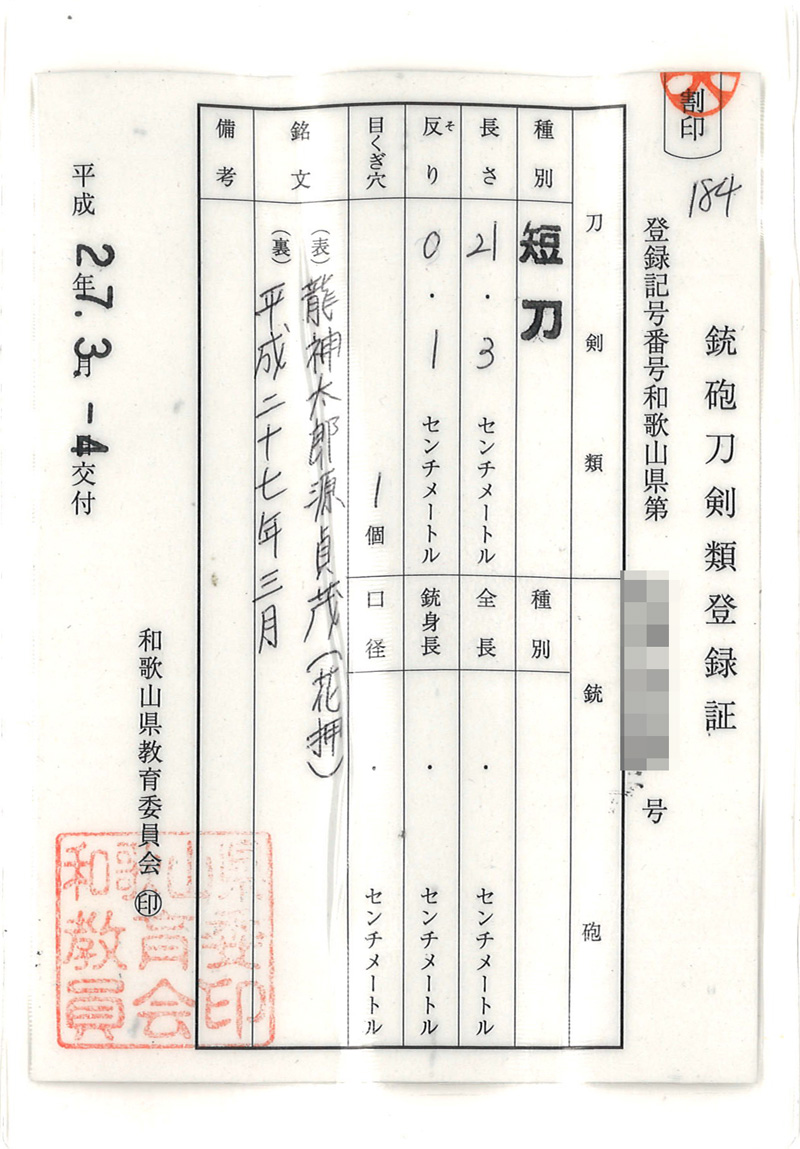 割印
184
銃砲刀剣類登録証
登録記号番号和歌山県第 号
刀剣類
銃砲
種別 短刀
種別
長さ 21.3センチメートル
全長 ・ センチメートル
反り そ 0.1センチメートル
銃身長 ・ センチメートル
目くぎ穴 1個
口径 ・ センチメートル
銘文
(表) 龍神太郎源貞茂(花押)
(裏) 平成二十七年三月
備考
平成27年3月-4日交付
和歌山県教育委員会 印
和歌山県
教育委
員会印